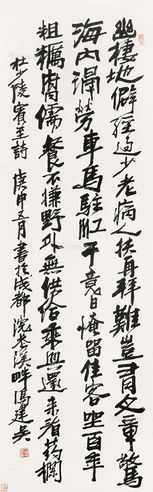 幽棲地僻經過少老病人扶再拜難豈有文章驚
海内漫勞車馬駐江干竟日淹留佳客坐百年
粗糲腐儒餐不嫌野外無供給乘興還來看藥欄
杜少陵賓至詩 庚申五月書於成都浣花溪畔馮建吳